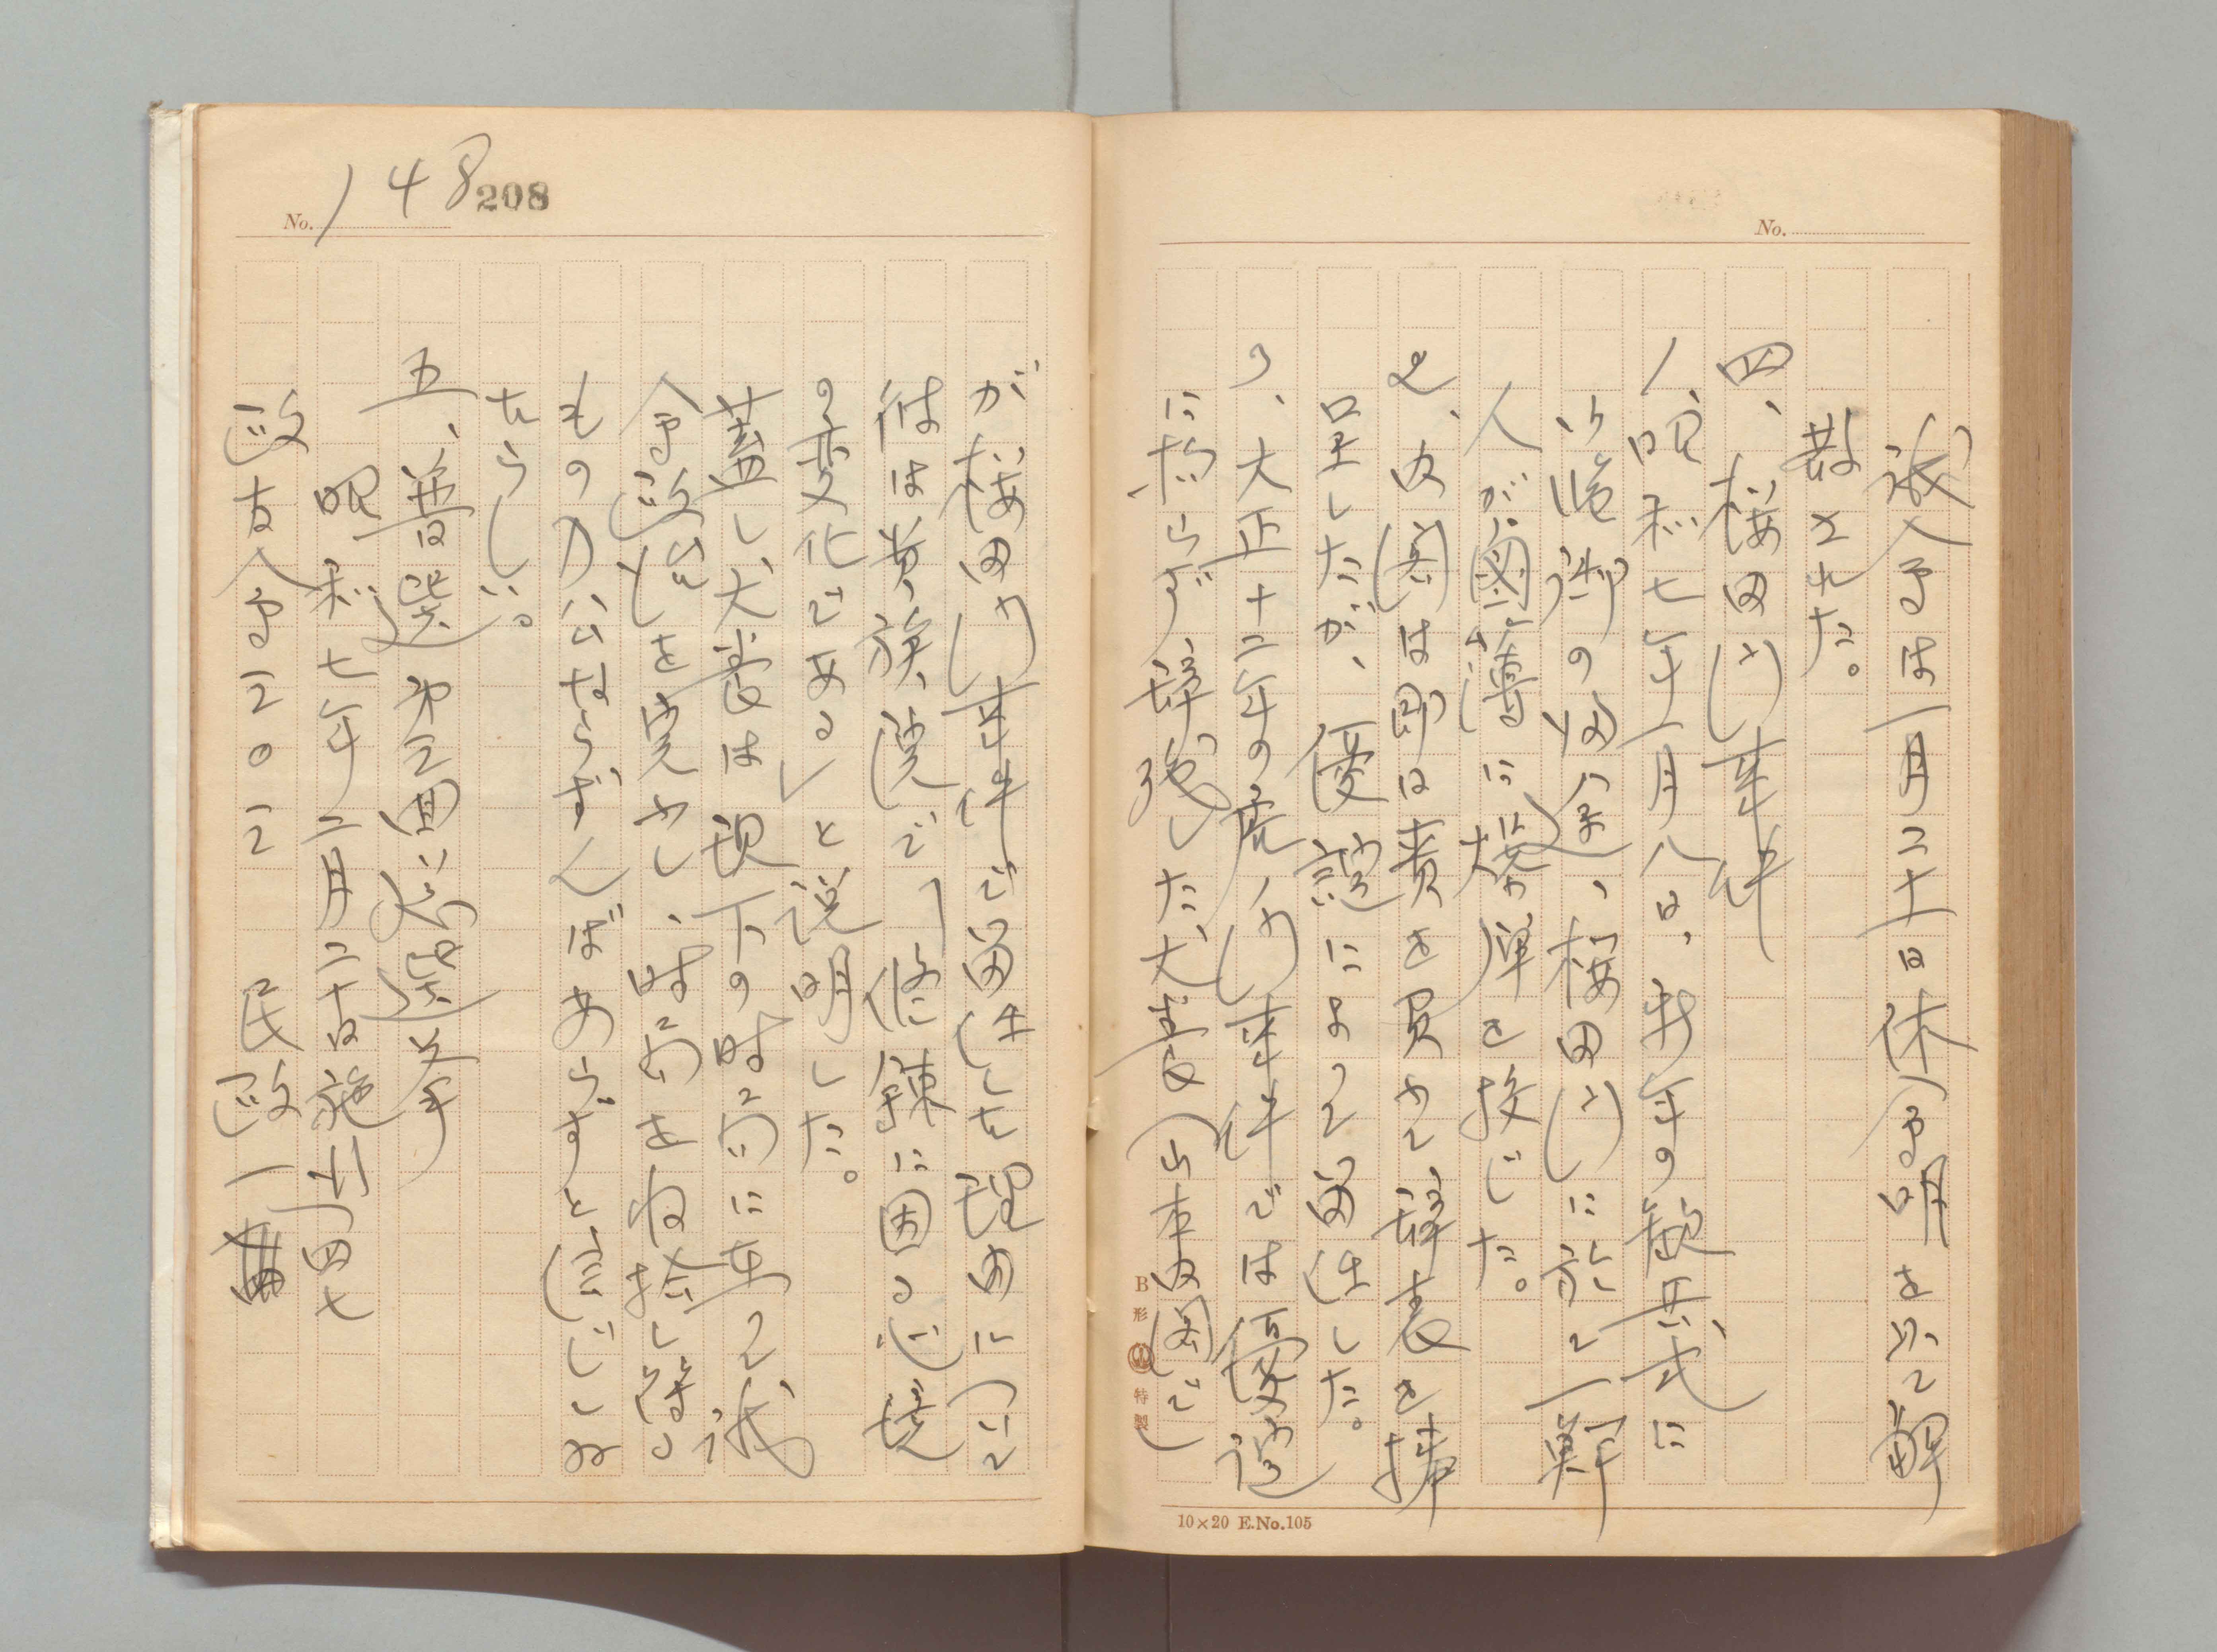 No.
議会は一月二十一日休会明を以て解
散された。
四、桜田門事件
1、昭和七年一月八日、新年の観兵式に
御臨御の御帰途、桜田門に於て一鮮
人が鹵簿に爆弾を投じた。
2、内閣は即日責を負ふて辞表を捧
呈したが、優諚によって留任した。
3、大正十二年の虎ノ門事件では優諚
に拘らず辞職した犬養(山本内閣で)
B形 特製
10×20 E.No.105
No. 148 208
が桜田門事件で留任した理由について
彼は貴族院で「修練に因る心境
の変化である」と説明した。
蓋し犬養は現下の時局に在って議
会政治を完うし、時局を収拾し得る
もの乃公ならざんばあらずと信じてゐ
たらしい。
五、普選第三回総選挙
昭和七年二月二十日施行四七
政友会三〇三 民政一